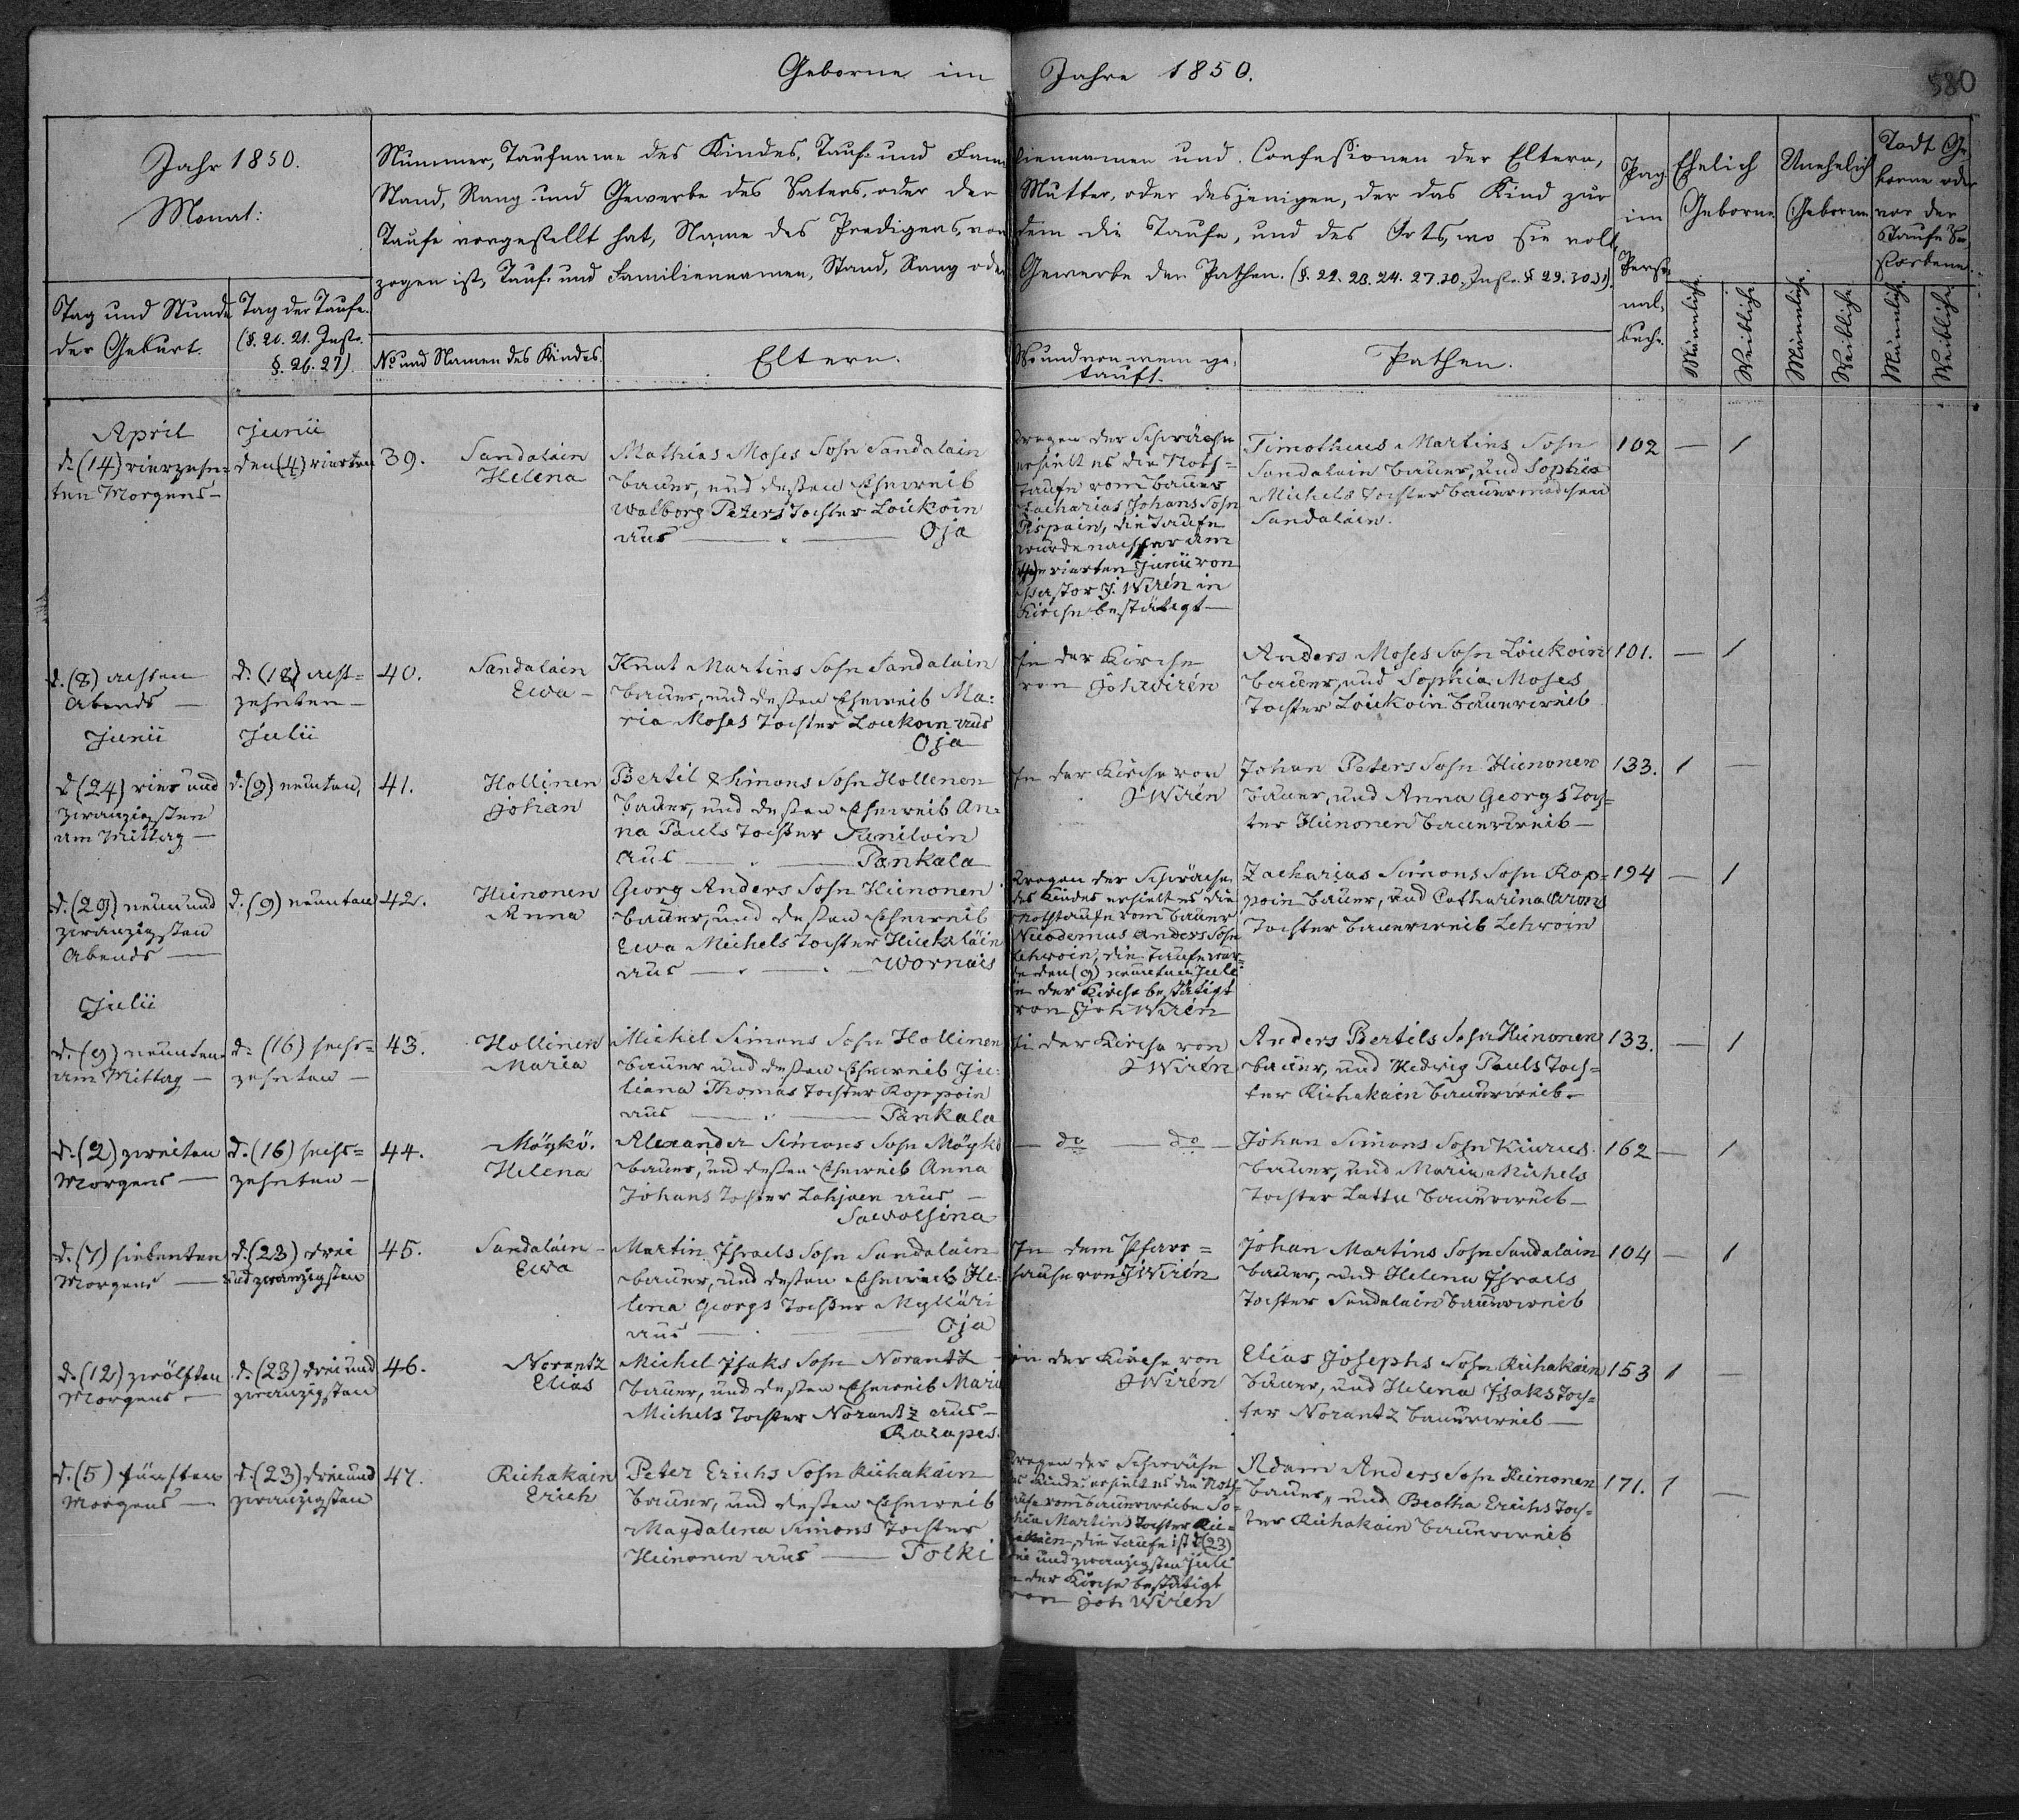 Geborne im Jahre 1850.
580
Jahr 1850.
Monat:
Tag und Stunde
der Geburt.
Tag der Taufe.
(§. 20. 21. Instr.
§. 26. 27)
Nummer, Taufname des Kindes, Tauf- und Familiennamen und Confessionen der Eltern,
Stand, Rang und Gewerbe des Vaters, oder der Mutter, oder desjenigen, der das Kind zur
Taufe vorgestellt hat, Name des Predigers, von dem die Taufe, und des Orts, wo sie voll-
zogen ist, Tauf- und Familiennamen, Stand, Rang oder Gewerbe der Pathen. (§. 22. 23. 24. 27. 30. Instr. § 29. 30 31).
No und Namen des Kindes.
Eltern.
Wo und von wem ge-
tauft.
Pathen.
Pag.
im
Perso-
nal-
buche.
Ehelich
Geborne
Unehelich
Geborne
Todt Ge-
borne oder
vor der
Taufe Ver-
storbene.
Männliche
Weibliche
Männliche
Weibliche
Männliche
Weibliche
April
d. (14) vierzehn-
ten Morgens —
Junii
den (4) vierten
39.
Sandalain
Helena
Mathias Moses Sohn Sandalain
Bauer, und deßen Eheweib
Walborg Peters Tochter Loukoin
aus — " — Oja
Wegen der Schwäche
erhielt es die Noth-
taufe vom Bauer
Zacharias Johans Sohn
Pispain, die Taufe
wurde nachher am
(4) vierten Junii von
Pastor J. Wirén in
Kirche bestätigt —
Timotheus Martins Sohn
Sandalain Bauer, und Sophia
Michels Tochter Bauermädchen
Sandalain.
102 — 1
d. (8) achten
Abends —
d. (18) acht-
zehnten —
40.
Sandalain
Ewa —
Knut Martins Sohn Sandalain
Bauer, und deßen Eheweib Ma-
ria Moses Tochter Loukoin aus
Oja
In der Kirche
von Joh Wirén
Anders Moses Sohn Loukoin
Bauer, und Sophia Moses
Tochter Loukoin Bauerweib
101. — 1
Junii
Julii
d (24) vier und
zwanzigsten
am Mittag —
d. (9) neunten,
41.
Hollinen
Johan
Bertil Simons Sohn Hollenen
Bauer, und deßen Eheweib An-
na Pauls Tochter Suniloin
aus — " — Pankala
In der Kirche von
J Wirén
Johan Peters Sohn Hünonen
Bauer, und Anna Georgs Toch-
ter Hünonen Bauerweib —
133. 1 —
d. (29) neun und
zwanzigsten
Abends —
d. (9) neunten
42.
Hünonen
Anna
Georg Anders Sohn Hünonen
Bauer, und deßen Eheweib
Ewa Michels Tochter Huckläin
aus — " — " — Wornais
Wegen der Schwäche
des Kindes erhielt es die
Nothtaufe vom Bauer
Nicodemus Anders Sohn
Lehwoin, die Taufe wur-
de den (9) neunten Juli
in der Kirche bestätigt
von Joh Wirén
Zacharias Simons Sohn Rop-
poin Bauer, und Catharina Arons
Tochter Bauerweib Lehwoin
194 — 1
Julii
d. (9) neunten
am Mittag —
d. (16) sechs-
zehnten —
43.
Hollinen
Maria
Michel Simons Sohn Hollinen
Bauer und deßen Eheweib Ju-
liana Thomas Tochter Roppoin
aus — " — Pankala
In der Kirche von
J Wirén
Anders Bertils Sohn Hünonen
Bauer, und Hedwig Pauls Toch-
ter Rihakain Bauerweib —
133. — 1
d. (2) zweiten
Morgens —
d. (16) sechs-
zehnten —
44.
Möykö.
Helena
Alexander Simons Sohn Möykö
Bauer, und deßen Eheweib Anna
Johans Tochter Lohjoen aus —
Sawolsina
— do — do —
Johan Simons Sohn Kiurus
Bauer, und Maria Michels
Tochter Lattu Bauerweib —
162 — 1
d. (7) siebenten
Morgens —
d. (23) drei
und zwanzigsten
45.
Sandalain —
Ewa
Martin Israels Sohn Sandalain
Bauer, und deßen Eheweib He-
lena Georgs Tochter Mylläri
aus — Oja
In dem Pfarr-
hause von J Wirén
Johan Martins Sohn Sandalain
Bauer, und Helena Israels
Tochter Sandalain Bauerweib
104 — 1
d. (12) zwölften
Morgens —
d. (23) drei und
zwanzigsten
46.
Norantz
Elias
Michel Isaks Sohn Norantz —
Bauer, und deßen Eheweib Maria
Michels Tochter Norantz aus —
in der Kirche von
J Wirén
Elias Josephs Sohn Rihakain
Bauer, und Helena Isaks Toch-
ter Norantz Bauerweib —
153 1 —
d. (5) fünften
Morgens —
d. (23) drei und
zwanzigsten
47.
Rihakain
Erich
Peter Erichs Sohn Rihakain
Bauer, und deßen Eheweib
Magdalena Simons Tochter
Hünonen aus — Tolki
Wegen der Schwäche
des Kindes erhielt es die Noth-
taufe vom Bauerweibe So-
phia Martins Tochter Ri-
hakain, die Taufe ist d (23)
drei und zwanzigsten Juli
in der Kirche bestätigt
von Joh Wirén
Adam Anders Sohn Hünonen
Bauer, und Beatha Erichs Toch-
ter Rihakain Bauerweib
171. 1 —